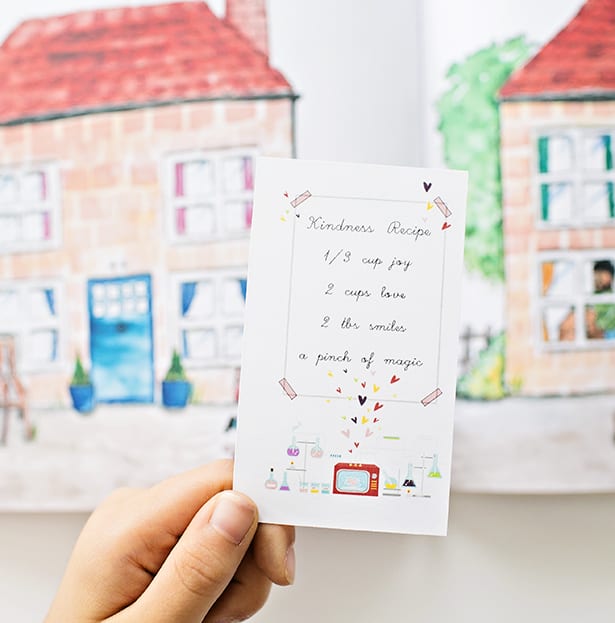 Kindness Recipe
1/3 cup joy
2 cups love
2 tbs smiles
a pinch of magic